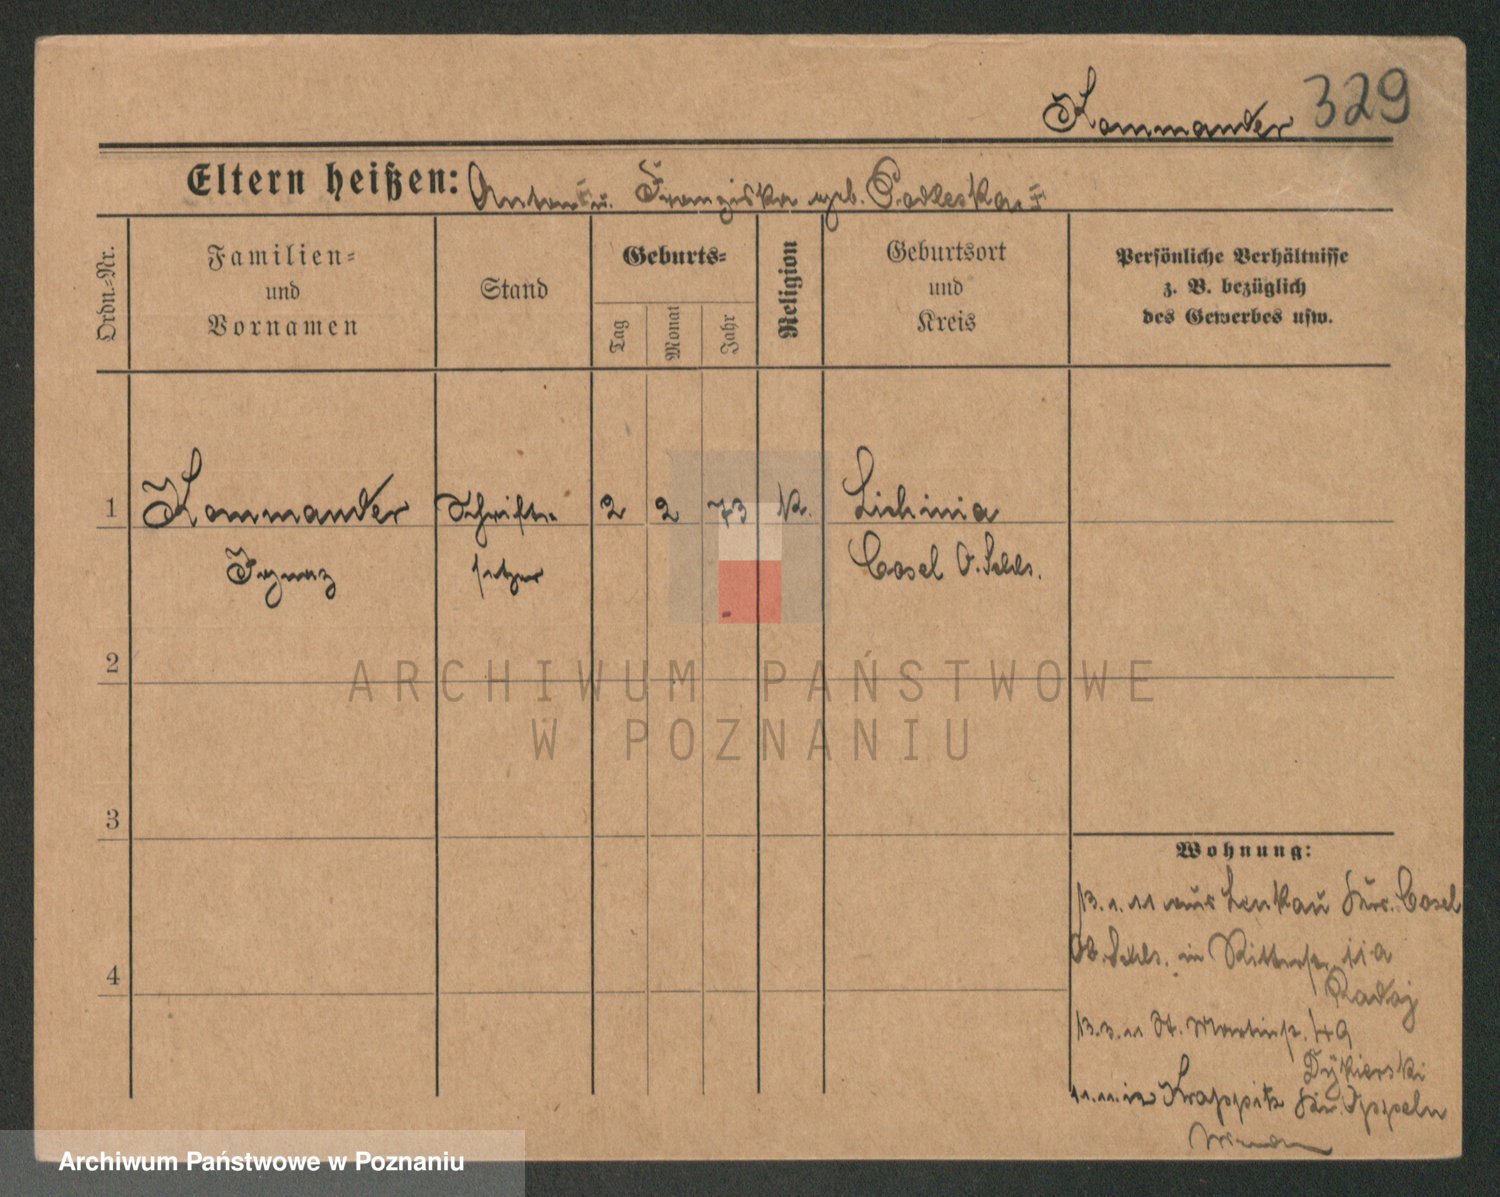 Kommander 329
Eltern heißen: Anton † u. Franziska geb. Podleska †
Ordn.-Nr.
Familien-
und
Vornamen
Stand
Geburts-
Tag
Monat
Jahr
Religion
Geburtsort
und
Kreis
Persönliche Verhältnisse
z. B. bezüglich
des Gewerbes usw.
1 Kommander Schrift- 2 2 73 K. Lichinia
Ignaz setzer Cosel O. Schls.
2
3
4
Wohnung:
13.1.11 aus Lenkau Kr. Cosel
Ob. Schls. in Ritterstr. 11a
Radoj
13.3.11 St. Martinstr. 49
Dykierski
11.11.12 Krappitz Kr. Oppeln
ARCHIWUM PAŃSTWOWE
W POZNANIU
Archiwum Państwowe w Poznaniu